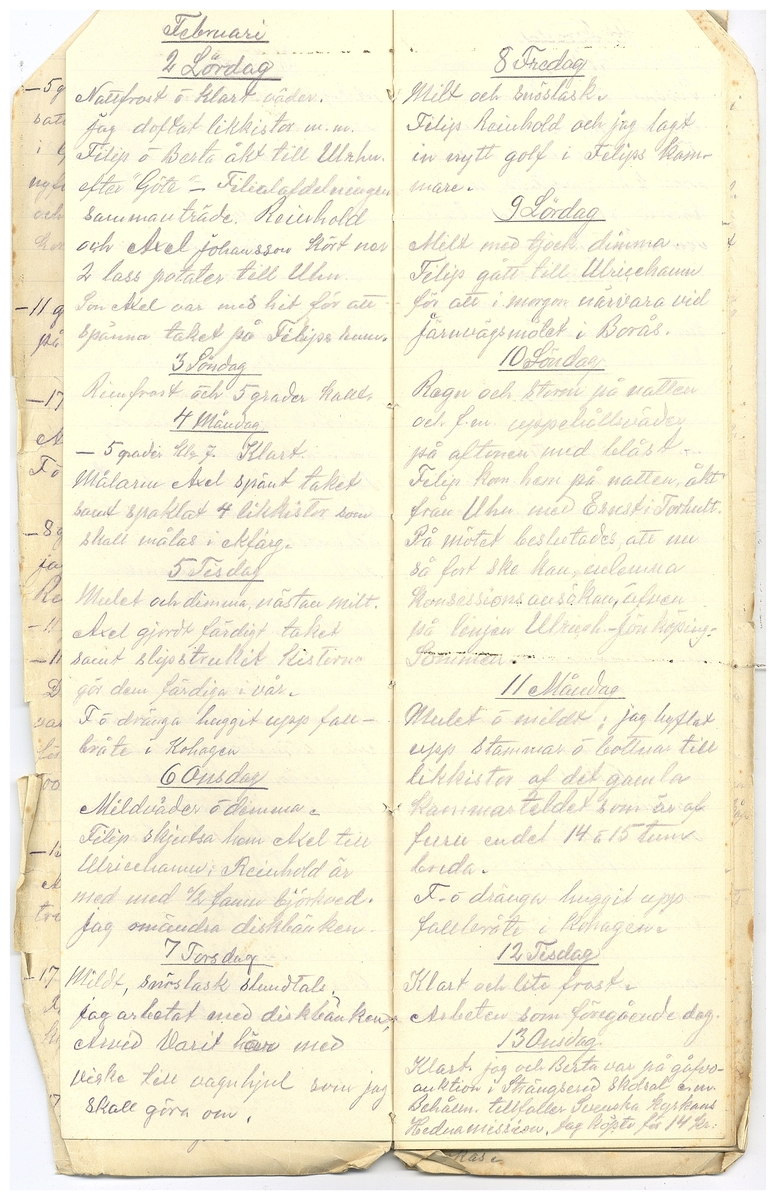 Februari
2 Lördag
Nattfrost ö klart väder.
jag doftat likkistor m.m.
Filip ö Berta åkt till Ulrhn.
efter "Göte" – Filialafdelningen
sammanträde. Reinhold
och Axel Johansson kört ner
2 lass potater till Uhn.
Son Axel var med hit för att
spänna taket på Filips kam.
3 Söndag
Rimfrost och 5 grader kallt.
4 Måndag
– 5 grader Klr 7. Klart.
Målaren Axel spänt taket
samt spaklat 4 likkistor som
skall målas i ekfärg.
5 Tisdag
Mulet och dimma, nästan milt.
Axel gjordt färdigt taket
samt slipstrukit kistorna
gör dem färdiga i vår.
F ö dränga huggit upp fall-
bräte i Kohagen
6 Onsdag
Mildväder ö dimma.
Filip skjutsa hem Axel till
Ulricehamn; Reinhold är
med med 1/2 famn björkved.
Jag omändra diskbänken.
7 Torsdag
Mildt, snöslask stundtals.
jag arbetat med diskbänken,
Arvid Varit här med
virke till vagnhjul som jag
skall göra om.
8 Fredag
Milt och snöslask.
Filip Reinhold och jag lagt
in nytt golf i Filips kam-
mare.
9 Lördag
Milt med tjock dimma.
Filip gått till Ulricehamn
för att i morgon närvara vid
Järnvägsmötet i Borås.
10 Söndag
Regn och storm på natten
och f.m. uppehållsväder
på aftonen med blåst.
Filip kom hem på natten, åkt
från Uhn med Ernst i Torhult.
På mötet beslutades, att nu
så fort ske kan, inlemna
konsessionsansökan, äfven
på linjen Ulriceh-Jönköping-
Tommen.
11 Måndag
Mulet ö mildt; jag hyflat
upp stammar ö bottnar till
likkistor af det gamla
kammarteldet som är af
furu endet 14 à 15 tum
breda.
F. ö dränga huggit upp
fallbräte i Kohagen.
12 Tisdag
Klart och lite frost.
Arbeten som föregående dag.
13 Onsdag
Klart. jag och Berta var på gåfvo-
auktion i Strängsered skolsal e.m.
Behålln. tillfaller Svenska Kyrkans
Hednamission. Jag köpte för 14 Kr.